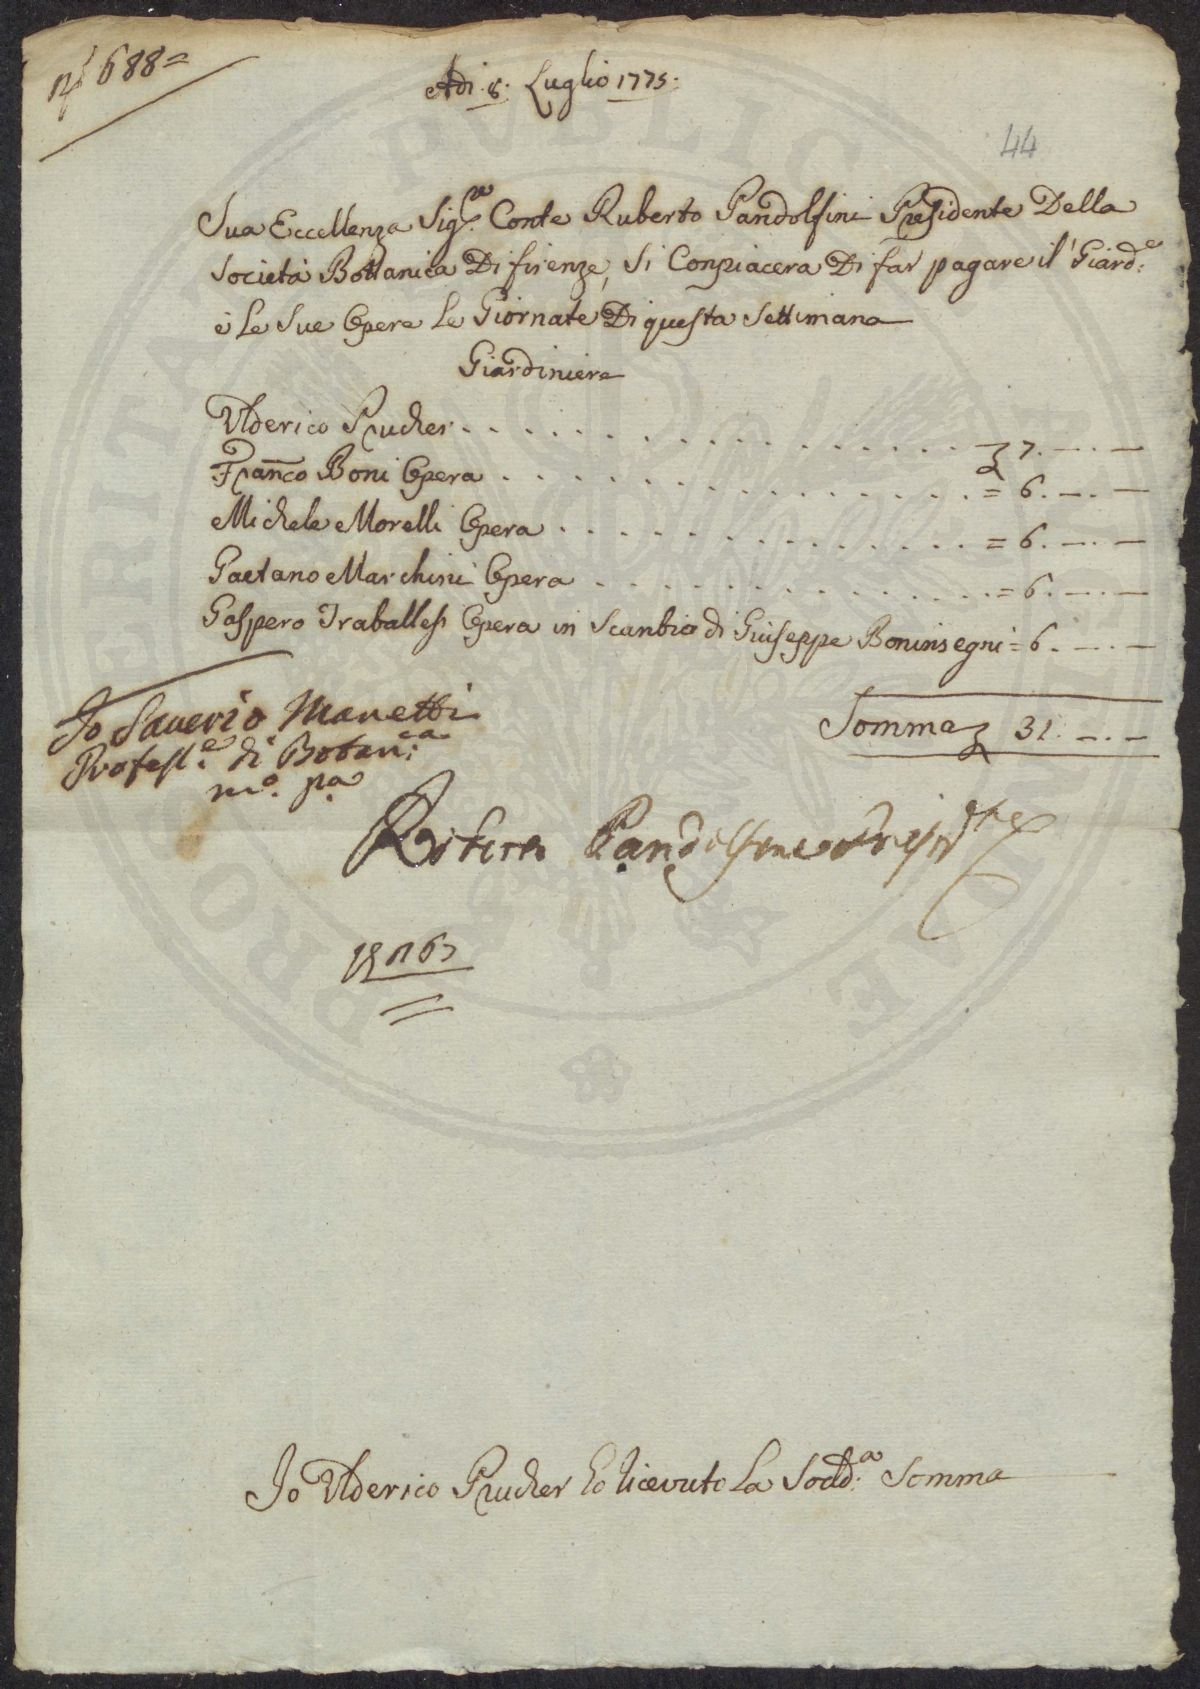 N° 688=
Adi 8. Luglio 1775.
44
Sua Eccellenza Sig.re Conte Ruberto Pandolfini Presidente Della
Società Bottanica Di firenze, si Conpiacera Di far pagare il Giard.e
è Le Sue Opere Le Giornate Di questa Settimana
Giardiniere
Ulderico Prucher 7.—.—
Franco Boni Opera = 6.—.—
Michele Morelli Opera = 6.—.—
Gaetano Marchini Opera = 6.—.—
Gaspero Traballesi Opera in Scanbio di Guiseppe Boninsegni = 6.—.—
Somma 31.—.—
Io Saverio Manetti
Profess.e di Botan.ca
mo. pa
Roberto Pandolfini Presid.te
Io Ulderico Prucher ho ricevuto La Sodd.a Somma